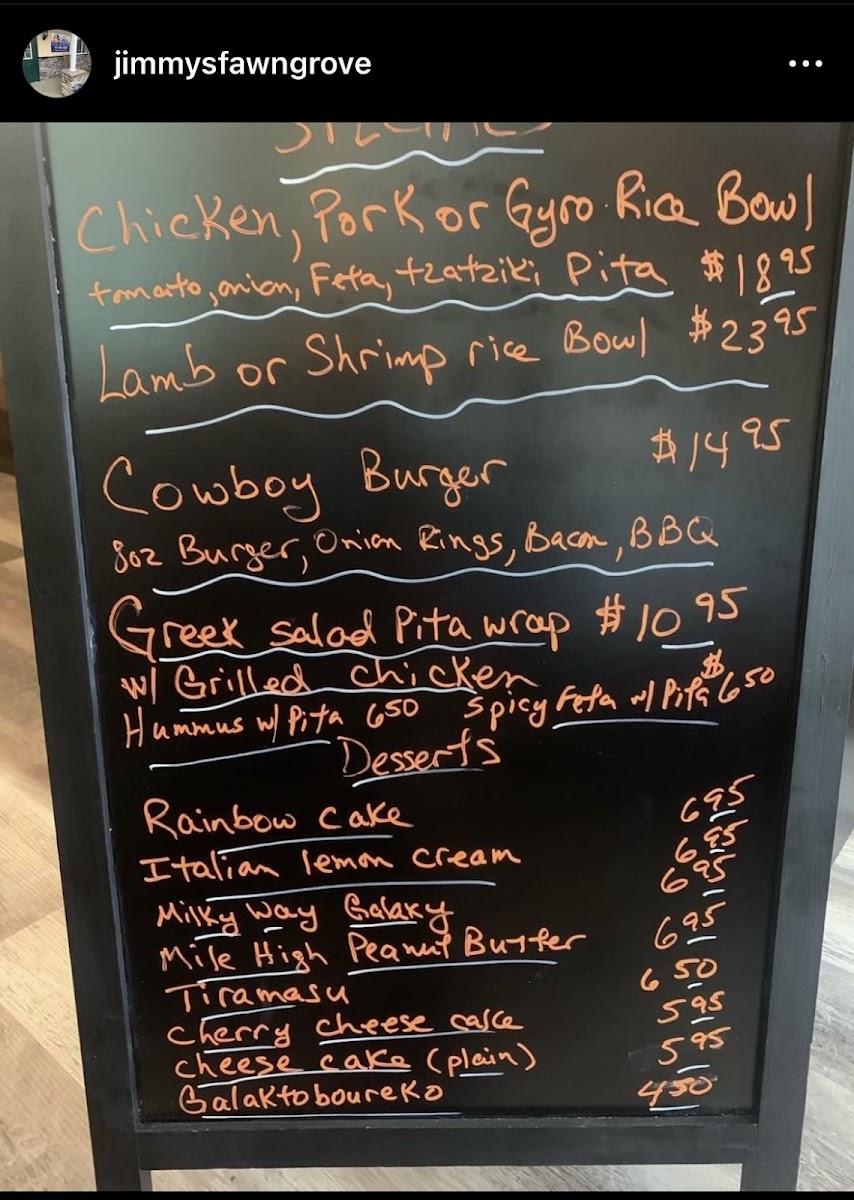 jimmysfawngrove
SPECIALS
Chicken, Pork or Gyro Rice Bowl
tomato, onion, Feta, tzatziki Pita $18 95
Lamb or Shrimp rice Bowl $23 95
Cowboy Burger $14 95
8oz Burger, Onion Rings, Bacon, BBQ
Greek salad Pita wrap $10 95
w/ Grilled chicken
Hummus w/ Pita 6 50 Spicy Feta w/ Pita $6 50
Desserts
Rainbow cake 6 95
Italian lemon cream 6 95
Milky Way Galaxy 6 95
Mile High Peanut Butter 6 95
Tiramasu 6 50
Cherry cheese cake 5 95
cheese cake (plain) 5 95
Galaktoboureko 4 50